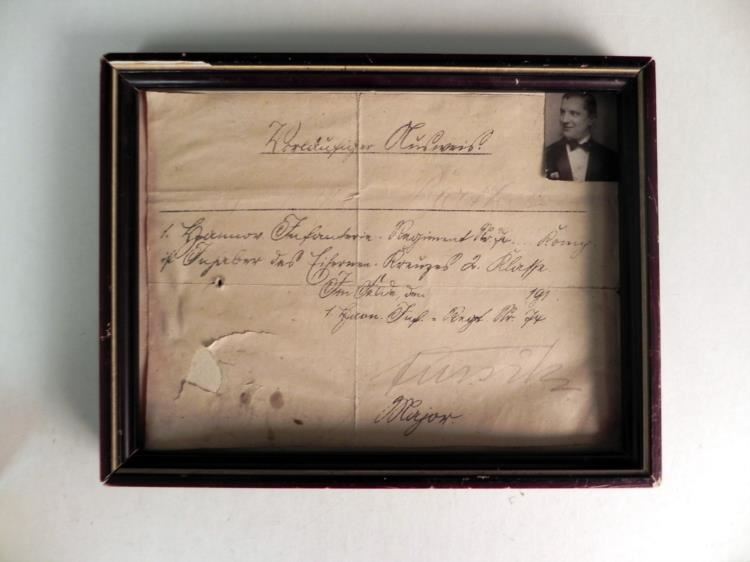 Vorläufiger Ausweis.
1. Hannov Infanterie-Regiment Nr. 74 .... Komp.
ist Inhaber des Eisernen-Kreuzes 2. Klasse
Im Felde, den 191
1 Hann. Inf.-Regt. Nr. 74
Major.